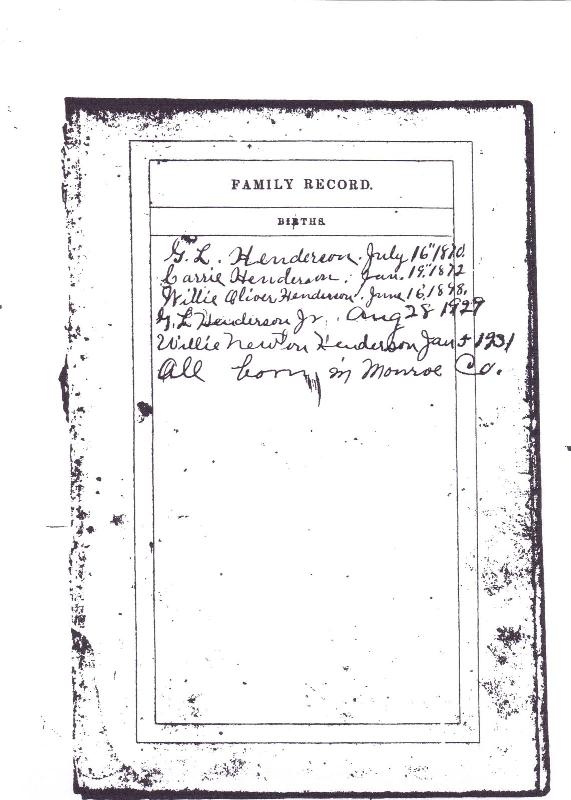 FAMILY RECORD.
BIRTHS.
G. L. Henderson. July 16" 1870.
Carrie Henderson. Jan. 19, 1872
Willie Oliver Henderson. June 16, 1898.
G. L Henderson Jr. Aug 28 1929
Willie Newton Henderson Jan 5 1931
All born in Monroe Co.